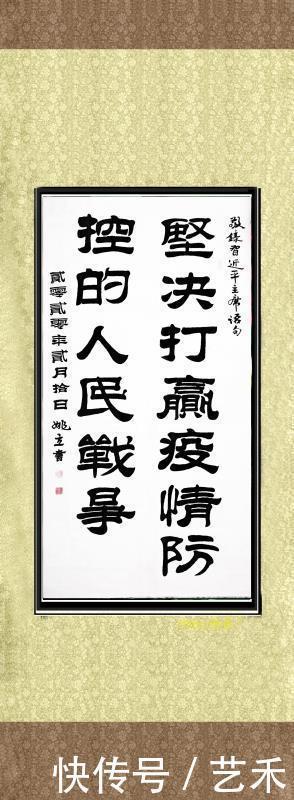 敬錄習近平主席语句
堅决打贏疫情防
控的人民戰爭
貳零貳零年貳月拾日 姚立書
快传号 / 艺禾